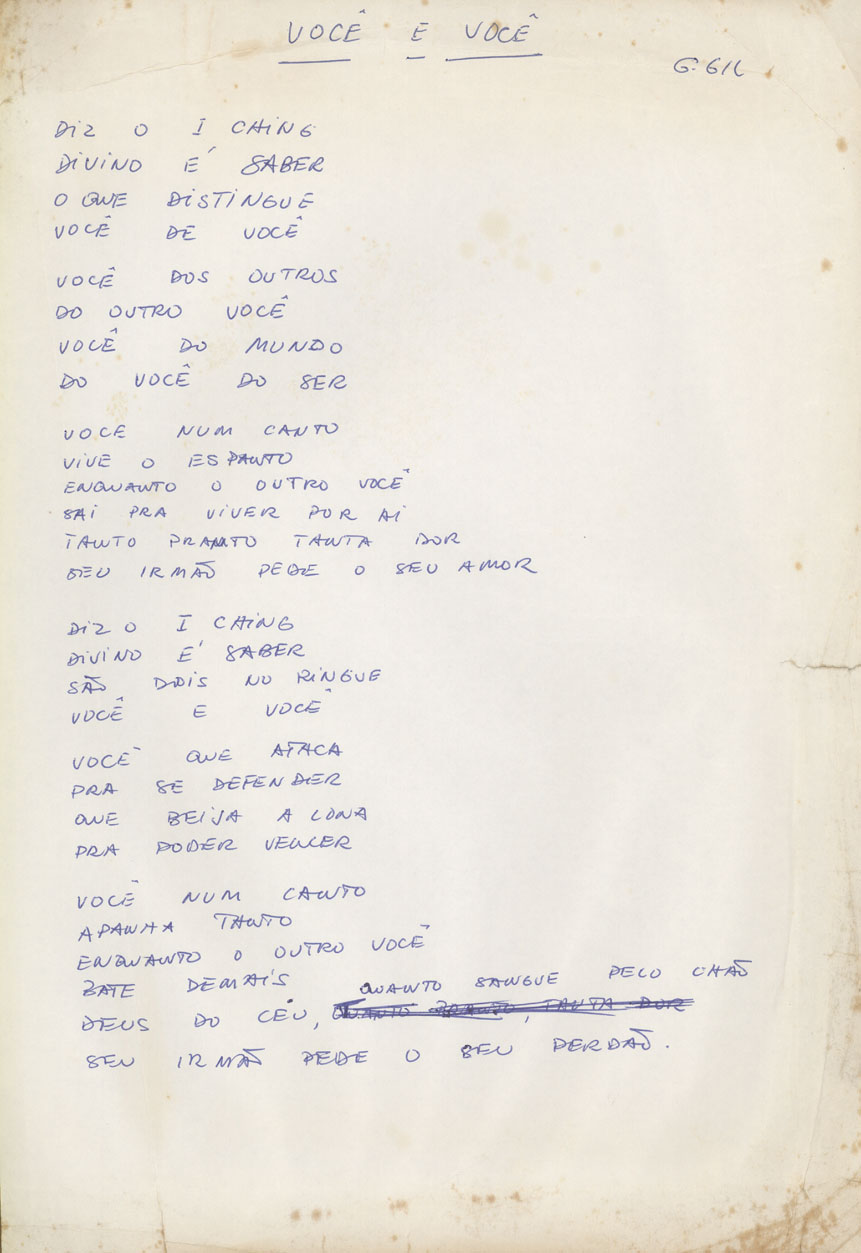 VOCÊ E VOCÊ
G. GIL
DIZ O I CHING
DIVINO É SABER
O QUE DISTINGUE
VOCÊ DE VOCÊ
VOCÊ DOS OUTROS
DO OUTRO VOCÊ
VOCÊ DO MUNDO
DO VOCÊ DO SER
VOCE NUM CANTO
VIVE O ESPANTO
ENQUANTO O OUTRO VOCÊ
SAI PRA VIVER POR AÍ
TANTO PRANTO TANTA DOR
SEU IRMÃO PEDE O SEU AMOR
DIZ O I CHING
DIVINO É SABER
SÃO DOIS NO RINGUE
VOCÊ E VOCÊ
VOCÊ QUE ATACA
PRA SE DEFENDER
QUE BEIJA A LONA
PRA PODER VENCER
VOCÊ NUM CANTO
APANHA TANTO
ENQUANTO O OUTRO VOCÊ
BATE DEMAIS
QUANTO SANGUE PELO CHÃO
DEUS DO CÉU, QUANTO PRANTO, TANTA DOR
SEU IRMÃO PEDE O SEU PERDÃO.